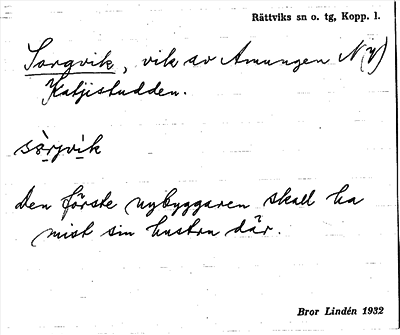 Rättviks sn o. tg, Kopp. l.
Sorgvik, vik av Amungen N(v)
Katjistudden.
sòrjvik
den förste nybyggaren skall ha
mist sin hustru där.
Bror Lindén 1932